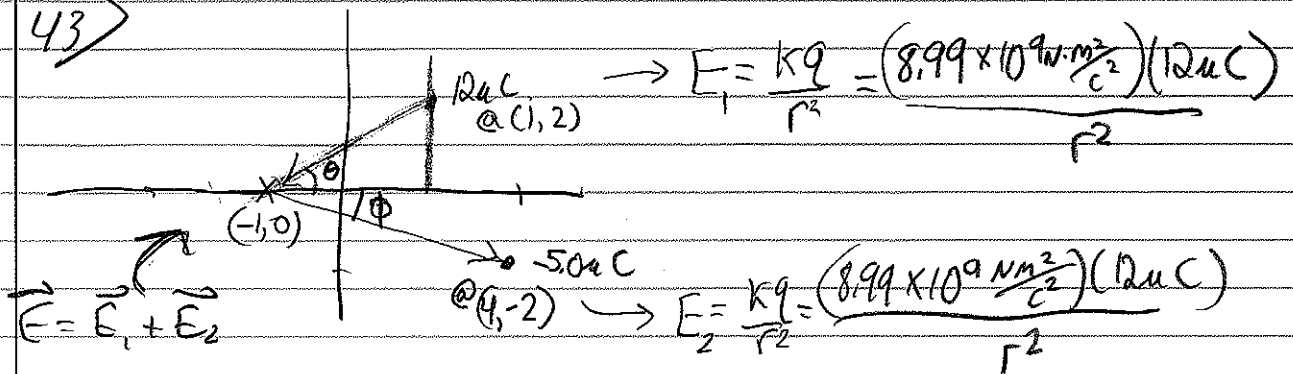 43)
12uC
@(1,2)
→ E₁ = Kq/r² = (8.99×10⁹ N·m²/C²)(12uC)/r²
θ
(-1,0)
ϕ
-5.0uC
@(4,-2)
→ E₂ = Kq/r² = (8.99×10⁹ Nm²/C²)(12uC)/r²
E⃗ = E⃗₁ + E⃗₂